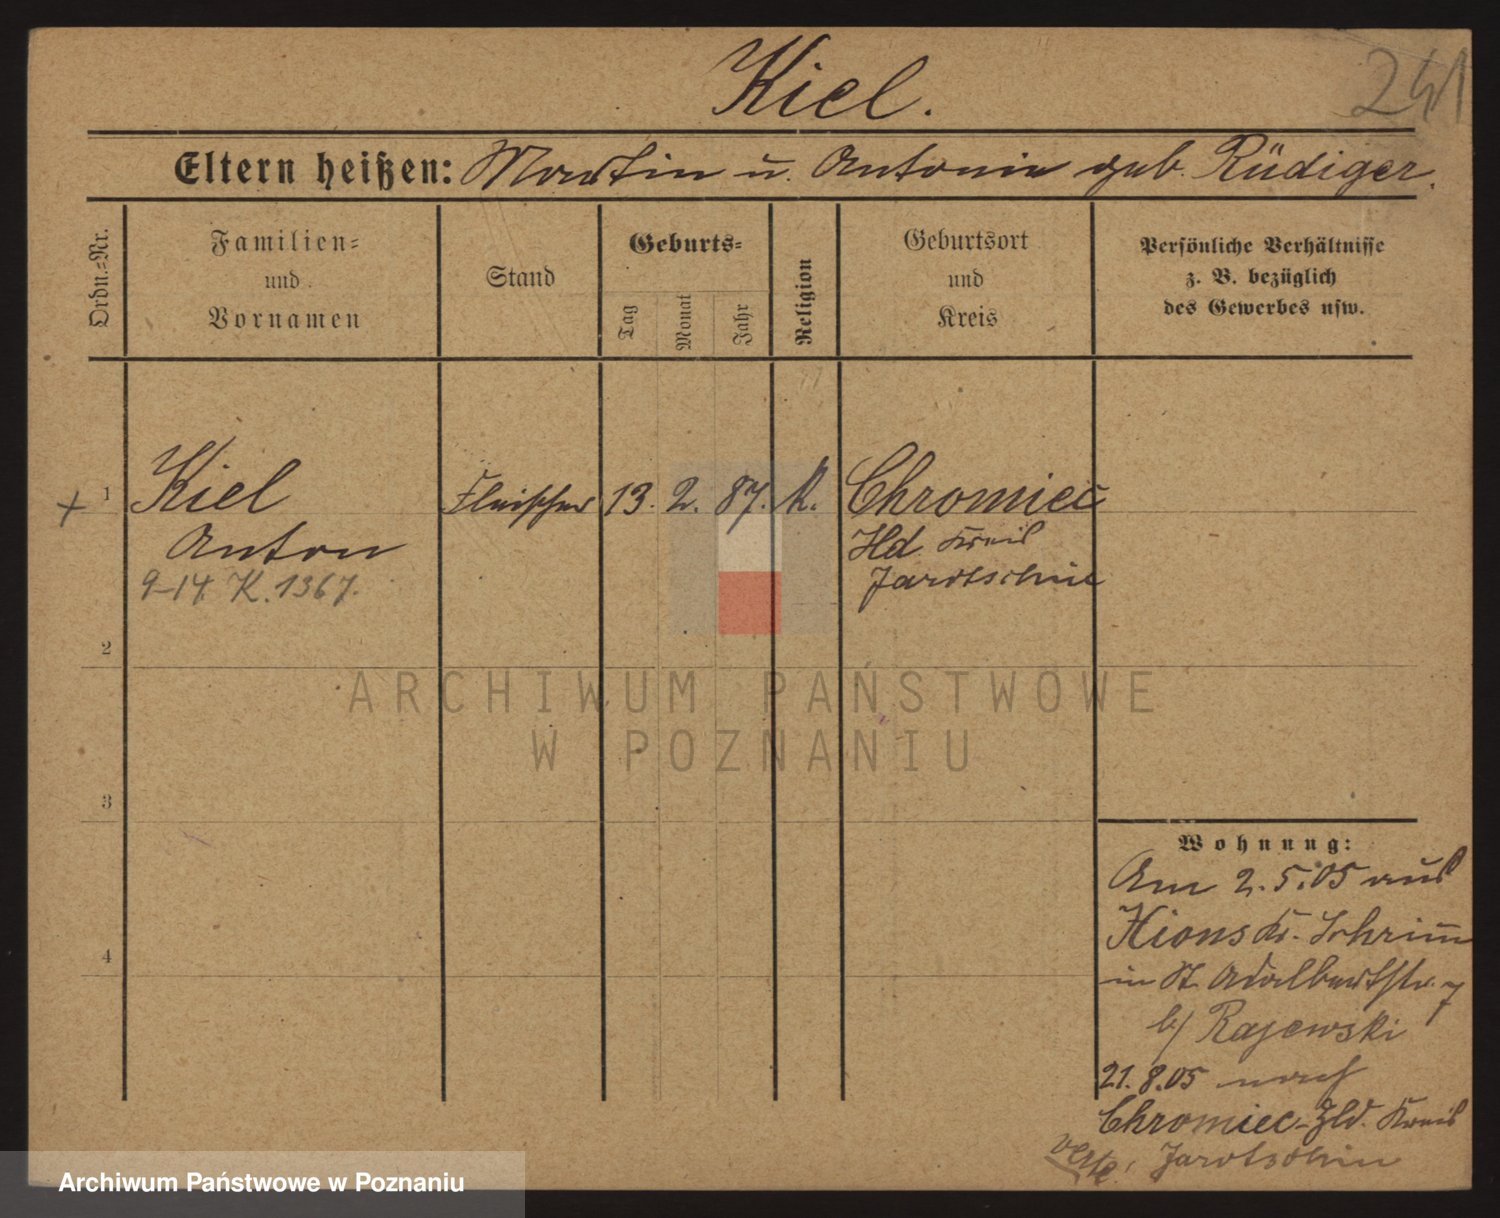 Kiel.
241
Eltern heißen: Martin u. Antonie geb. Rüdiger.
Ordn.=Nr.
Familien=
und
Vornamen
Stand
Geburts=
Tag
Monat
Jahr
Religion
Geburtsort
und
Kreis
Persönliche Verhältnisse
z. B. bezüglich
des Gewerbes usw.
+ 1 Kiel Fleischer 13. 2. 87. K. Chromiec
Anton Hld. Kreis
9-14. K. 1367. Jarotschin
2
3
4
ARCHIWUM PAŃSTWOWE
W POZNANIU
Wohnung:
Am 2.5.05 aus
Xions Kr. Schrimm
in St. Adalbertstr. 7
b/ Rajewski
21.8.05 nach
Chromiec-Hld. Kreis
Jarotschin
Archiwum Państwowe w Poznaniu